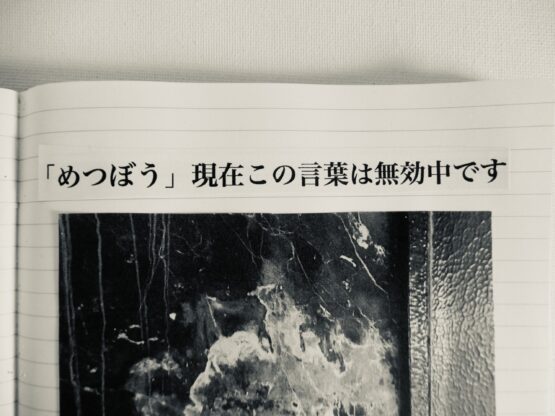 「めつぼう」現在この言葉は無効中です